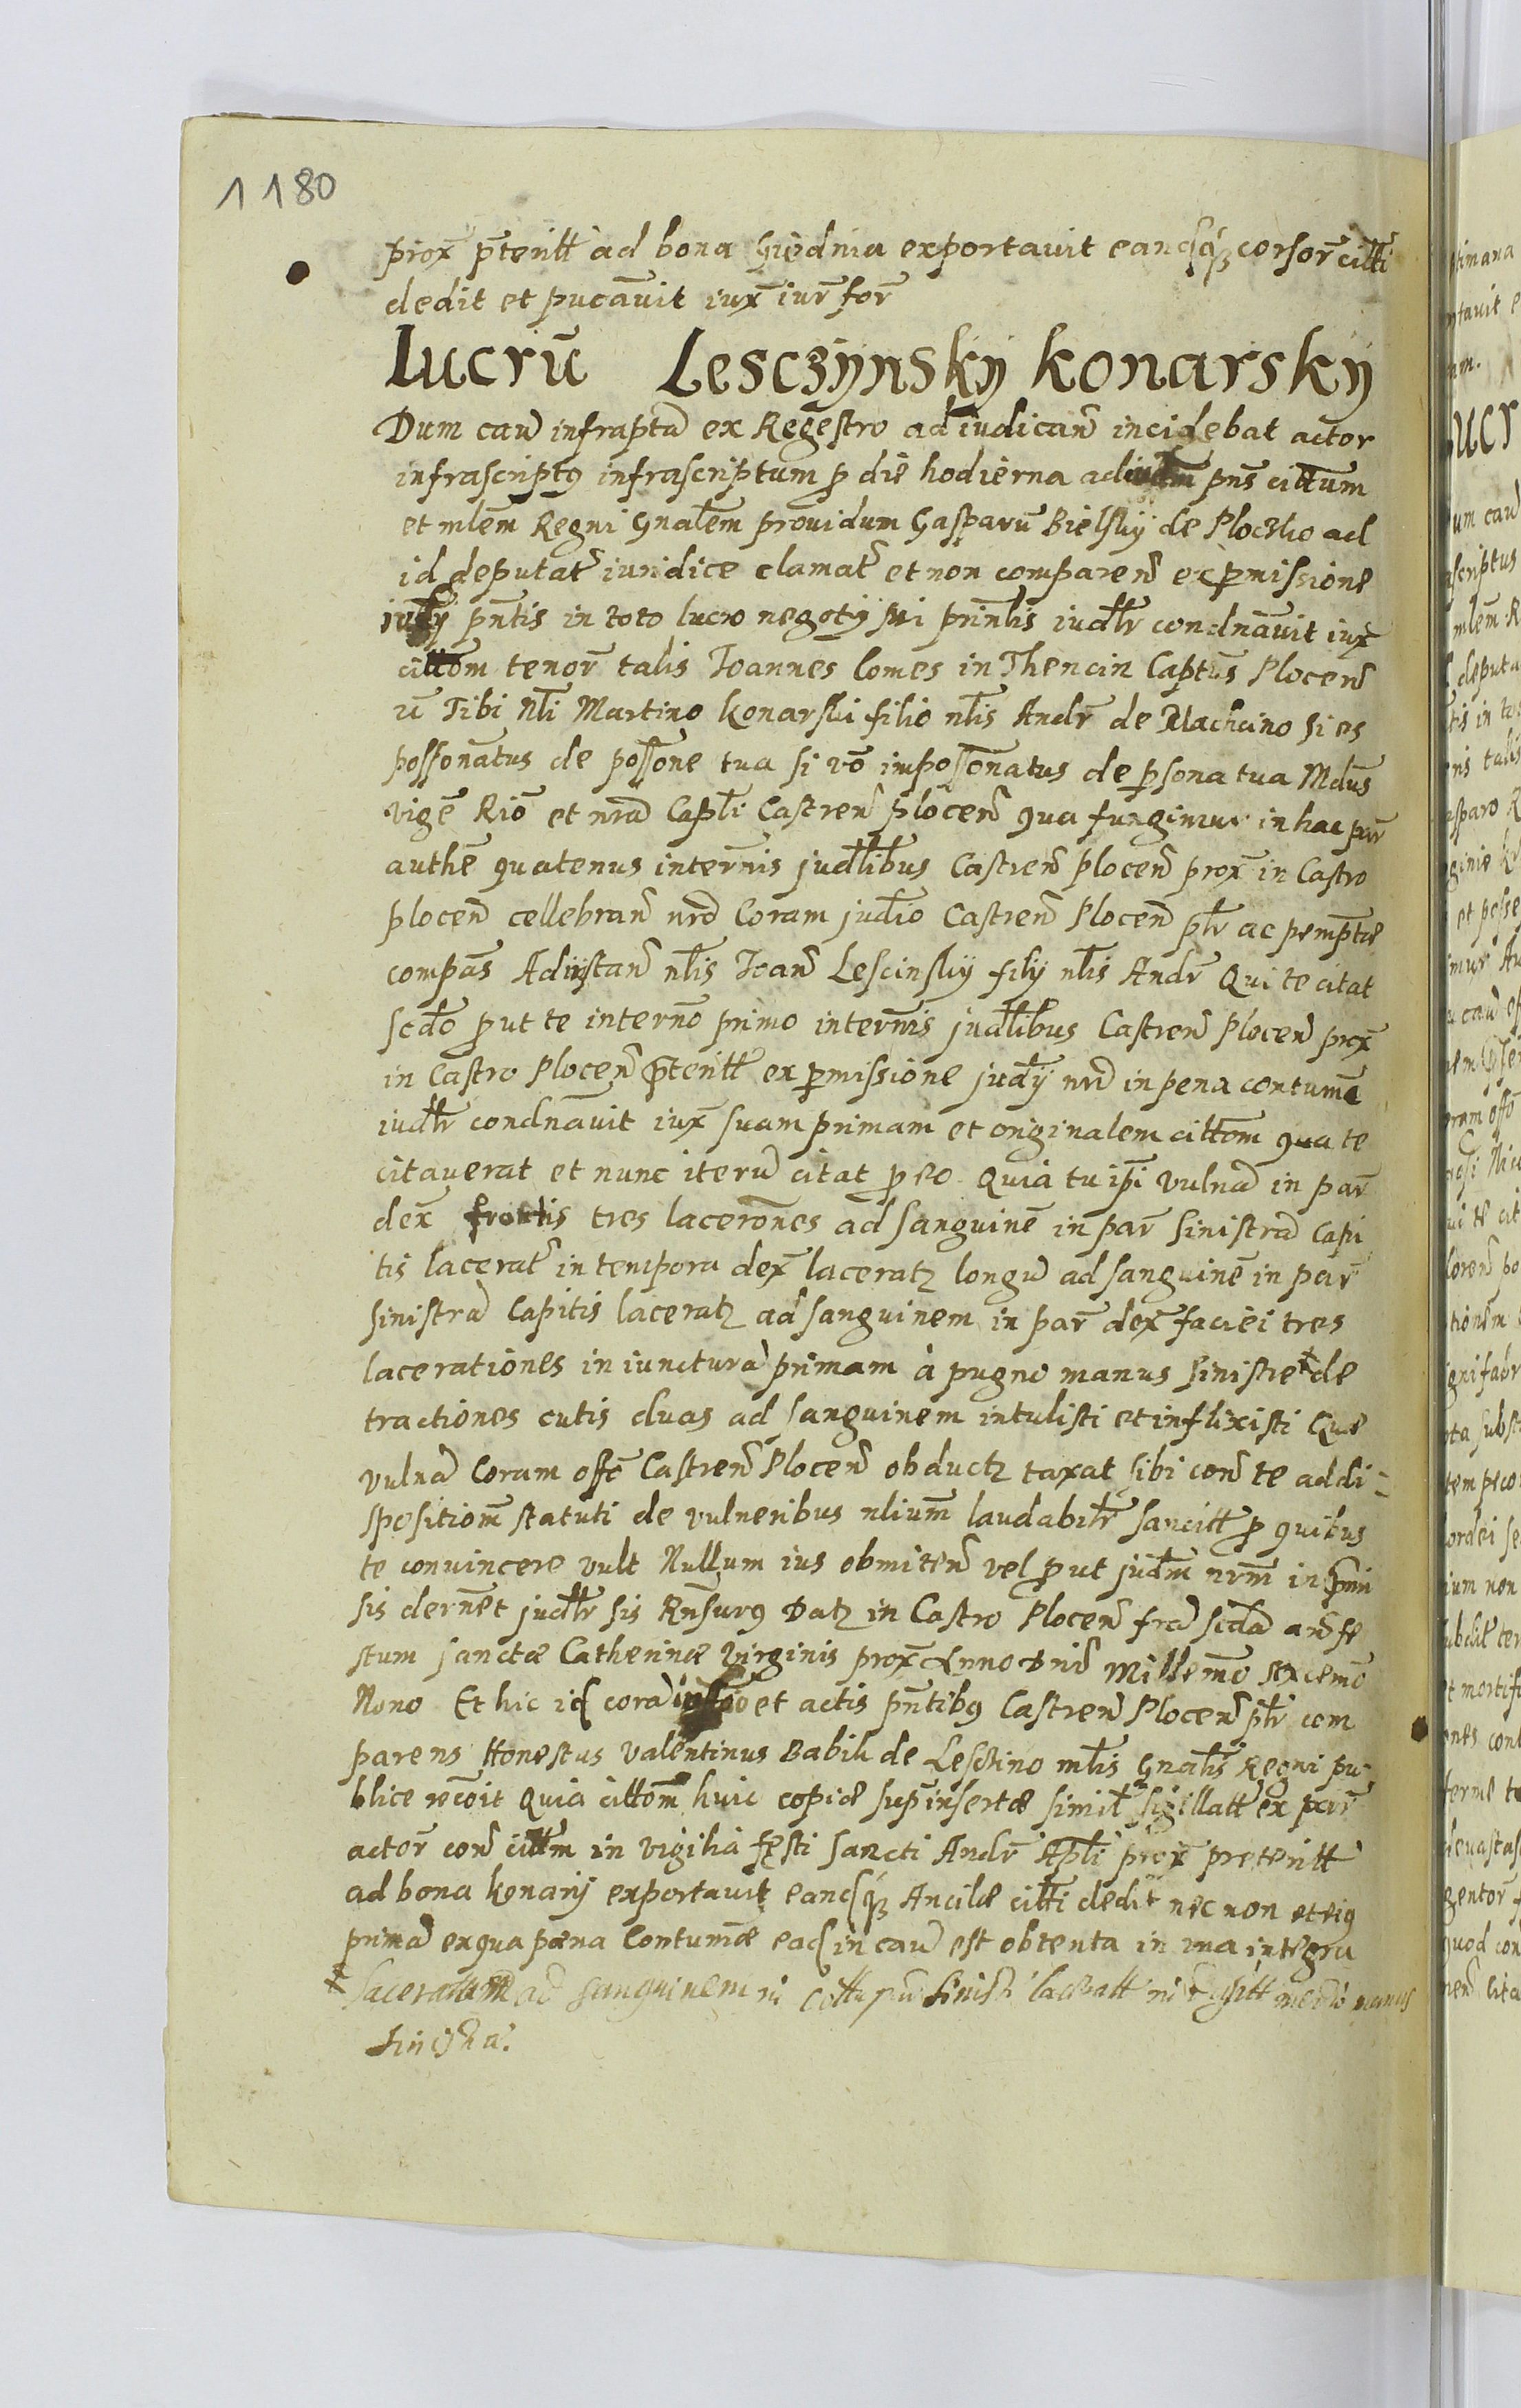 1180
prox p̄teritt ad bona Giednia exportavit eandq̄ȝ consor̄ citti
dedit et pucāvit iux̄ iur̄ for̄
Lucrū Lesczÿnskÿ Konarskÿ
Dum caū infraptā ex Regestro ad iudican̄ incidebat actor
infrascriptꝯ infrascriptum p die hodierna ad iudm pn̄s cittum
et mlēm Regni Gnalēm providum Gasparū Bielskÿ de Plocsko ad
id deputat̄ iuridice clamat̄ et non comparen̄ ex p̄missione
iudÿ pn̄tis in toto lucro negotÿ sui prinl̄is iudlr̄ condnāvit iux̄
cittōm tenor̄ talis Ioannes Comes in Thencin Captūs Plocen̄
ū Tibi Nli Martino Konarski filio nl̄is Andr̄ de Machcino si es
possonātus de possōne tua si vō impossonātus de p̄sona tua Mdūs
vigē Riō et nrā Capl̄i Castren̄ Plocen̄ qua fungimur in hac par̄
authē quatenus intern̄is judl̄ibus Castren̄ Plocen̄ prox̄ in Castro
Plocen̄ cellebran̄ nrō Coram judīo Castren̄ Plocen̄ plr̄ ac pemptiē
compās Ad instan̄ nl̄is Ioan̄ Lescinskÿ filÿ nl̄is Andr̄ Qui te citat
scdō put te internō primo intern̄is judl̄ibus Castren̄ Plocen̄ prox̄
in Castro Plocen̄ p̄teritt ex p̄missione judÿ nrī in pena contumā
iudlr̄ condnāvit iux̄ suam primam et originalem cittōm qua te
citaverat et nunc iterū citat p eo Quia tu ip̄i vulnā in par̄
dex̄ frontis tres lacerōnes ad sanguinē in par̄ sinistrā Capi
tis lacerat̄ in tempora dex̄ laceratȝ longū ad sanguinē in par̄
sinistrā Capitis laceratȝ ad sanguinem in par̄ dex̄ faciei tres
lacerationes in iuncturā primam à pugno manus sinistre ‡ de
tractiones cutis duas ad sanguinem intulisti et inflixisti Quæ
vulnā Coram offō Castren̄ Plocen̄ obductȝ taxat sibi con̄ te ad di=
spositiom̄ statuti de vulneribus nliūm laudabilr̄ sancitt p quibus
te convincere vult Nullum ius obmiten̄ vel put judm̄ nrm̄ in p̄mi
sis dernēt judlr̄ sis Rn̄surꝯ Datȝ in Castro Plocen̄ frā scdā an̄ fe
stum sanctæ Catherinæ Virginis prox̄ Anno Dnī Millemō sexcemō
Nono Et hic id corā iudīo et actis pn̄tibꝯ Castren̄ Plocen̄ plr̄ com
parens Honestus Valentinus Babik de Lesczino ml̄is Gnal̄is Regni pu
blice recōit Quia cittōm huic copiæ sup̄ insertæ simil̄ sigillatt ex par̄
actor̄ con̄ cittm in vigilia festi sancti Andr̄ Apl̄i prox̄ preteritt
ad bona Konarÿ exportavit eandq̄ȝ Ancilæ citti dedit nec non et eiꝯ
primā ex qua pæna Contumāc ead in caū est obtenta in ma integra
‡ laceratam ad sanguinem in sinistr laceratt in medio manus
sinistra.